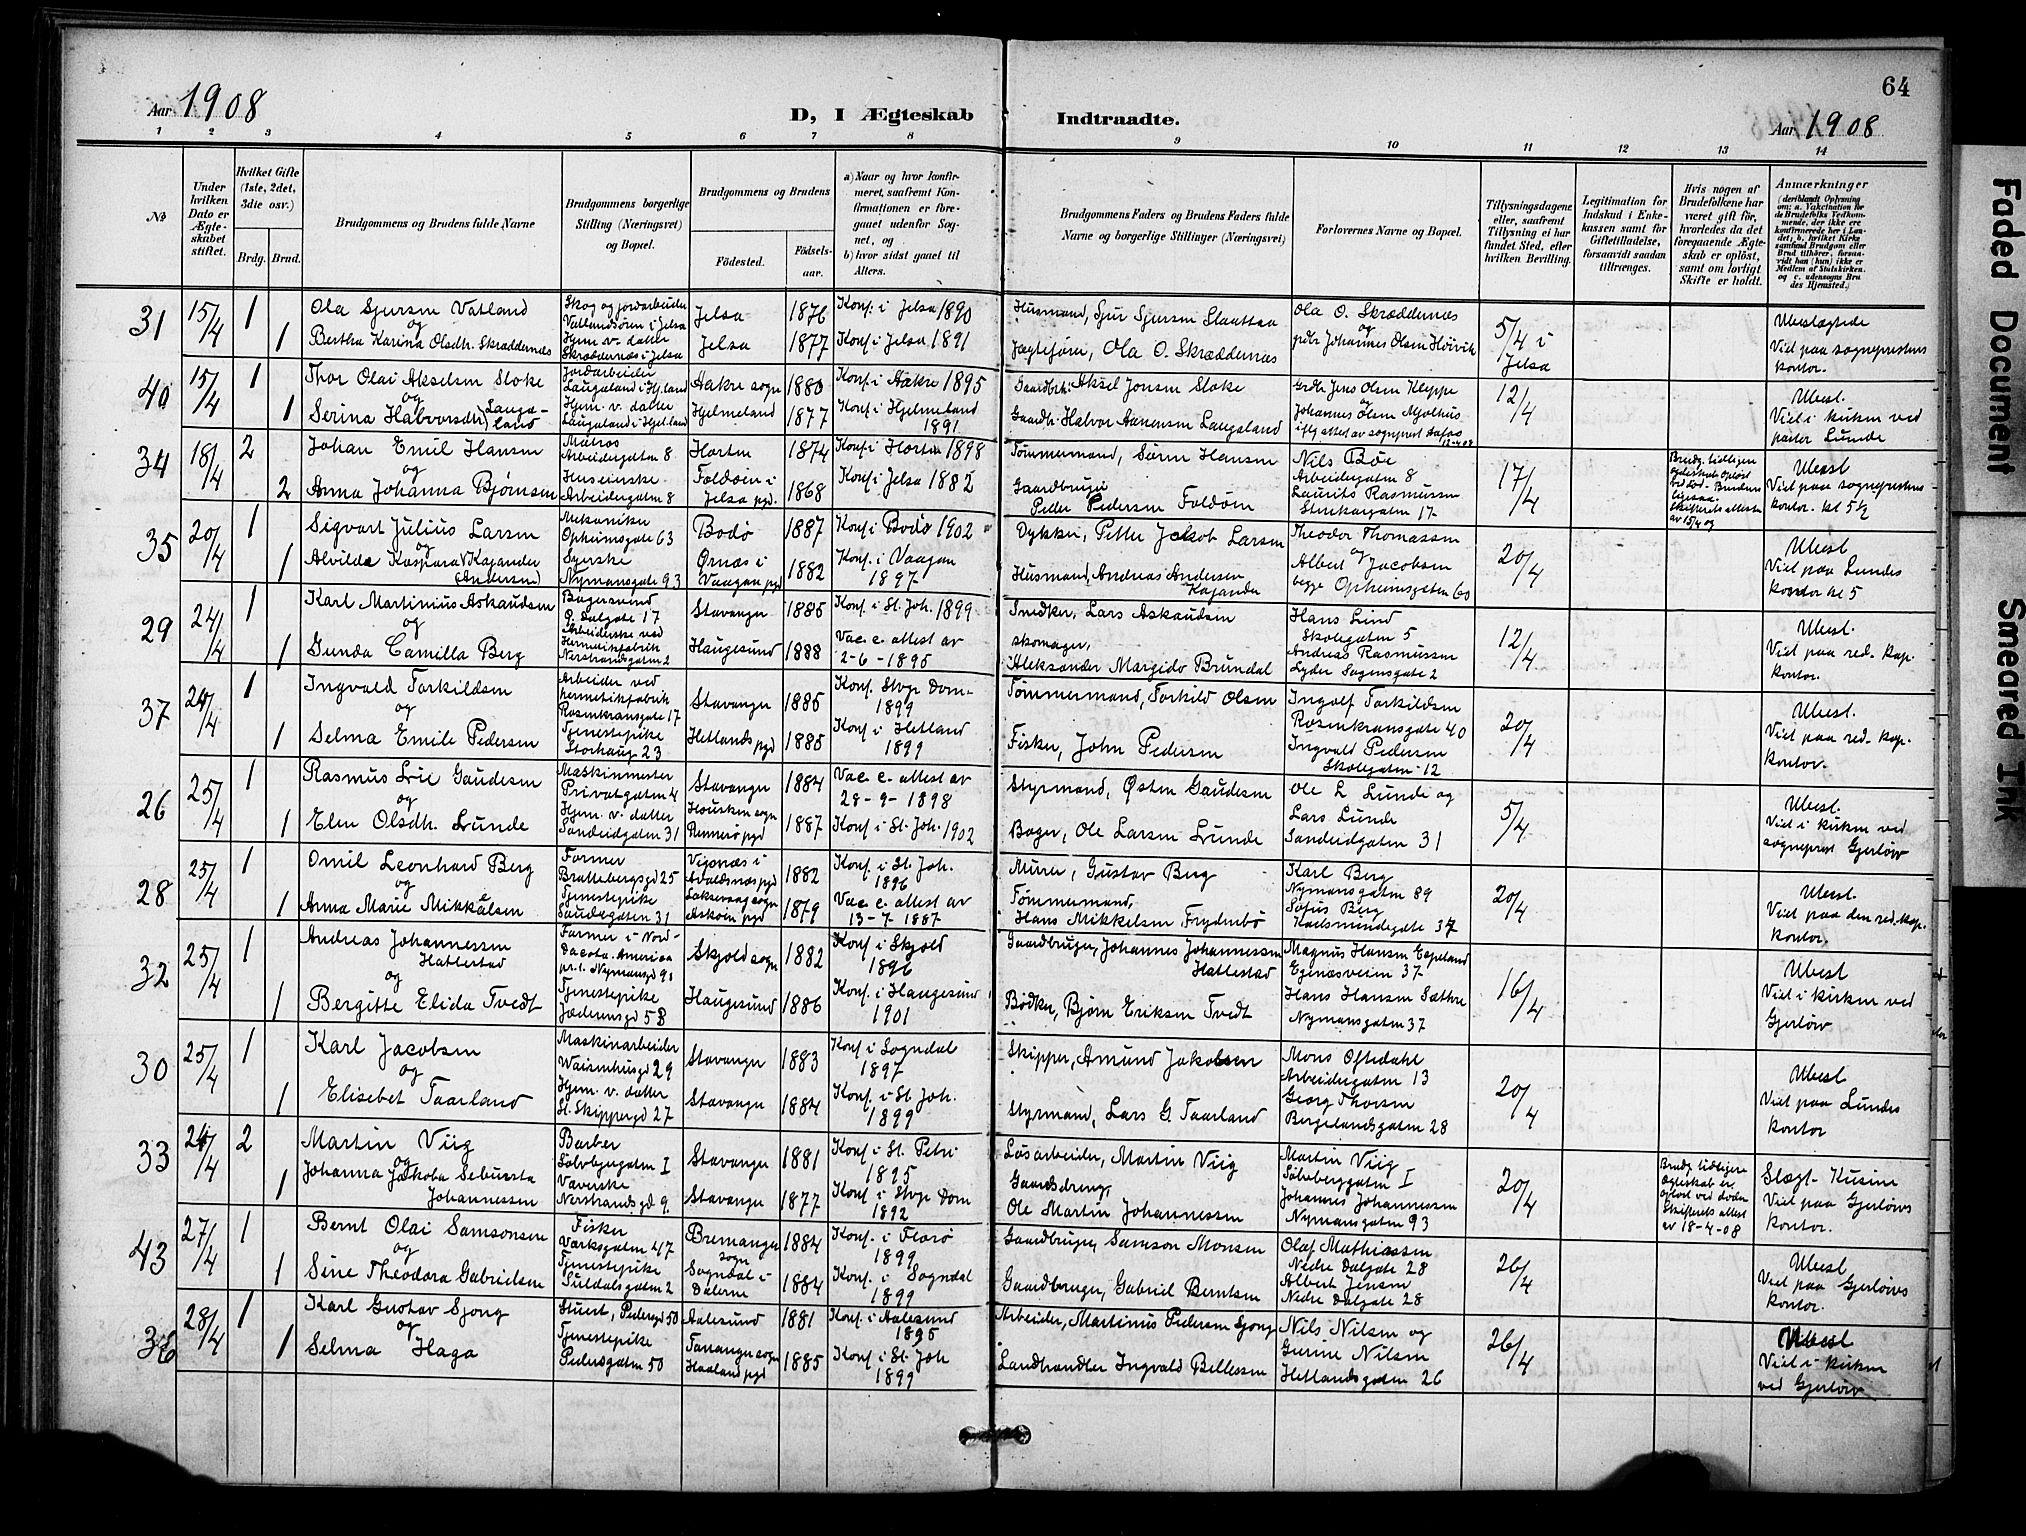 64
Aar 1908
D, I Ægteskab Indtraadte.
Aar 1908
1 2 3 4 5 6 7 8 9 10 11 12 13 14
No
Under hvilken Dato er Ægteskabet stiftet.
Hvilket Gifte (1ste, 2det, 3die osv.)
Brdg. Brud.
Brudgommens og Brudens fulde Navne
Brudgommens borgerlige Stilling (Næringsvei) og Bopæl.
Brudgommens og Brudens
Fødested.
Fødsels-aar.
a) Naar og hvor konfirmeret, saafremt Konfirmationen er foregaaet udenfor Sognet, og
b) hvor sidst gaaet til Alters.
Brudgommens Faders og Brudens Faders fulde Navne og borgerlige Stillinger (Næringsvei)
Forlovernes Navne og Bopæl.
Tillysningsdagene eller, saafremt Tillysning ei har fundet Sted, efter hvilken Bevilling.
Legitimation for Indskud i Enkekassen samt for Giftetilladelse, forsaavidt saadan tiltrænges.
Hvis nogen af Brudefolkene har været gift før, hvorledes da det foregaaende Ægteskab er opløst, samt om lovligt Skifte er holdt.
Anmærkninger
31 15/4 1 Ola Sjursen Vatland Skog og jordarbeider Vatlandsåen i Jelsa Jelsa 1876 Konf. i Jelsa 1890 Husmand, Sjur Sjursen Slaattaa Ola O. Skræddernæs 5/4 i Jelsa Ubeslægtede
og
1 Bertha Karina Olsdtr. Skræddernæs Hjem. v. datter Skræddernæs i Jelsa Jelsa 1877 Konf. i Jelsa 1891 Jægtefører, Ola O. Skræddernæs og Johannes Olsen Viet paa sogneprestens kontor.
40 15/4 1 Thor Olai Akselsen Stoke Jordarbeider Laugaland i Hj.land 1880 1895 Gaardbr. Aksel Jonsen Stoke Jens Olsen Kleppe 12/4 Ubesl.
og
1 Serina Halvorsdtr. Laugaland Hjem. v. datter Laugaland i Hjel.land Hjelmeland 1877 Konf. i Hjelmeland 1891 Gaardbr. Halvor Aanensen Laugaland Johannes Olsen Mjølhus Viet i kirken ved pastor Lunde
34 18/4 2 Johan Emil Hansen Matros Arbeidergaten 8 Horten 1874 Konf. i Horten 1898 Tømmermand, Søren Hansen Nils Bøe Arbeidergaten 8 17/4 Ubesl
og
2 Anna Johanna Bjørnsen Arbeidergaten 8 Foldøen i Jelsa pgd. 1868 Konf. i Jelsa 1882 Gaardbruger Peder Pedersen Foldøen Laurits Rasmussen 17 Viet paa sogneprestens kontor. kl 5½
35 20/4 1 Sigvart Julius Larsen Mekaniker Opheimsgate 63 Bodø 1887 Konf. i Bodø 1902 Dykker, Petter Jakob Larsen Theodor Thomassen 20/4 Ubesl
og
1 Alvilde Kaspara Kajander (Andersen) Syerske Nymansgate 93 Ørnæs i Vaagan pgd 1882 Konf. i Vaagan 1897 Husmand, Andreas Andersen Kajander Albert Jacobsen begge Opheimsgaten 60 Viet paa Lundes kontor kl 5
29 24/4 1 Karl Martinius Askaudsen Bagersvend Ø. Dalgate 17 Stavanger 1885 Konf. i St. Joh. 1899 Snedker, Lars Askaudsen Hans Lind Skolegaten 5 12/4 Ubesl.
og
1 Gunda Camilla Berg Arbeiderske ved Hermetikfabrik Nerstrandsgaten 2 Haugesund 1888 Vac. c. attest av 2-6-1895 skomager, Aleksander Margido Brundal Andreas Rasmussen Lyder Sagensgate 2 Viet paa red. kap. kontor.
37 24/4 1 Ingvald Torkildsen Arbeider ved hermetikfabrik Rosenkransgate 17 Stavanger 1885 Konf. Stvgr Dom. 1899 Tømmermand, Torkild Olsen Ingolf Torkildsen Rosenkransgate 40 20/4 Ubesl.
og
1 Selma Emile Pedersen Tjenestepike Storhaug 23 Hetlands pgd 1885 Konf. i Hetland 1899 Fisker, John Pedersen Ingvald Pedersen Skolegaten 12 Viet paa red. kap. kontor.
26 25/4 1 Rasmus Lrie Gaudesen Maskinmester Privatgaten 4 Stavanger 1884 Vac. c. attest av 28-9-1898 Styrmand, Østen Gaudesen Ole L Lunde og 5/4 Ubesl.
og
1 Elen Olsdtr. Lunde Hjem. v. datter Sandeidgaten 31 Rennesø pgd 1887 Konf. i St. Joh. 1902 Bager, Ole Larsen Lunde Lars Lunde Sandeidgaten 31 Viet i kirken ved sogneprest Gjerløw
28 25/4 1 Omil Leonhard Berg Farmer Brattebergsgd 25 Vigsnæs i Avaldsnæs pgd 1882 Konf. i St. Joh. 1896 Murer, Gustav Berg Karl Berg Nymansgaten 89 20/4 Ubesl.
og
1 Anna Marie Mikkelsen Tjenestepike Saudegaten 31 Laksevaag sogn Askøen pgd 1879 Vac. c. attest av 13-7-1887 Tømmermand, Hans Mikkelsen Frydenbø Sofus Berg 37 Viet paa den red. kap. kontor.
32 25/4 1 Andreas Johannessen Hattestad Farmer i Nord-Dacota. Amerika pr. t. Nymansgd 91 Skjold sogn 1882 Konf. i Skjold 1896 Gaardbruger, Johannes Johannessen Hattestad Magnus Hansen Egenæsveien 37 16/4 Ubesl
og
1 Bergitte Elida Tvedt Tjenestepike Jæderensgd 5B Haugesund 1886 Konf. i Haugesund 1901 Bødker, Bjørn Eriksen Tvedt Hans Hansen Sæthre Nymansgaten 37 Viet i kirken ved Gjerløw
30 25/4 1 Karl Jacobsen Maskinarbeider Waisenhusgd 29 Stavanger 1883 Konf. i Sogndal 1897 Skipper, Amund Jakobsen Mons Oftedahl Arbeidergaten 13 20/4 Ubesl
og
1 Elisebet Taarland Hjem. v. datter St. Skippergd 27 Stavanger 1884 Konf. i St. Joh. 1899 Styrmand, Lars G. Taarland Georg Thorsen Bergelandsgaten 28 Viet paa Lundes kontor
33 24/4 2 Martin Viig Barber Sølvbergaten I Stavanger 1881 Konf. i St. Petri 1895 Løsarbeider, Martin Viig Martin Viig Sølvberggaten I 20/4 Brudg. tidligere ægteskab er opløst ved døden Skifterets attest av 18-4-08 Slægt- Kusine
og
1 Johanna Jakoba Johannessen Væverske Nerstrandsgd 9 Stavanger 1877 Konf. i Stvgr Dom 1892 Gaardsdreng, Ole Martin Johannessen Johannes Johannessen Nymansgaten 93 Viet paa Gjerløws kontor.
43 27/4 1 Bernt Olai Samsonsen Fisker Værksgaten 47 Bremanger sogn 1884 Konf. i Florø 1899 Gaardbruger, Samson Monsen Olaf Mathiassen Nedre Dalgate 28 26/4 Ubesl
og
1 Sine Theodora Gabrielsen Tjenestepike Suldalsgaten 2 Sogndal i Dalerne 1884 Konf. i Sogndal 1899 Gaardbruger, Gabriel Berntsen Albert Jensen Nedre Dalgate 28 Viet paa Gjerløws kontor.
36 28/4 1 Karl Gustav Sjong Stuert, Pedersgd 50 Aalesund 1881 Konf. i Aalesund 1895 Arbeider, Martinus Pedersen Sjong Nils Nilsen og 26/4 Ubesl
og
1 Selma Haga Tjenestepike Pedersgaten 50 Tananger sogn Haaland pgd 1885 Konf. i St. Joh 1899 Landhandler Ingvald Bellesen Gurine Nilsen Hetlandsgaten 26 Viet i kirken ved Gjerløw
Faded Document
Smeared Ink